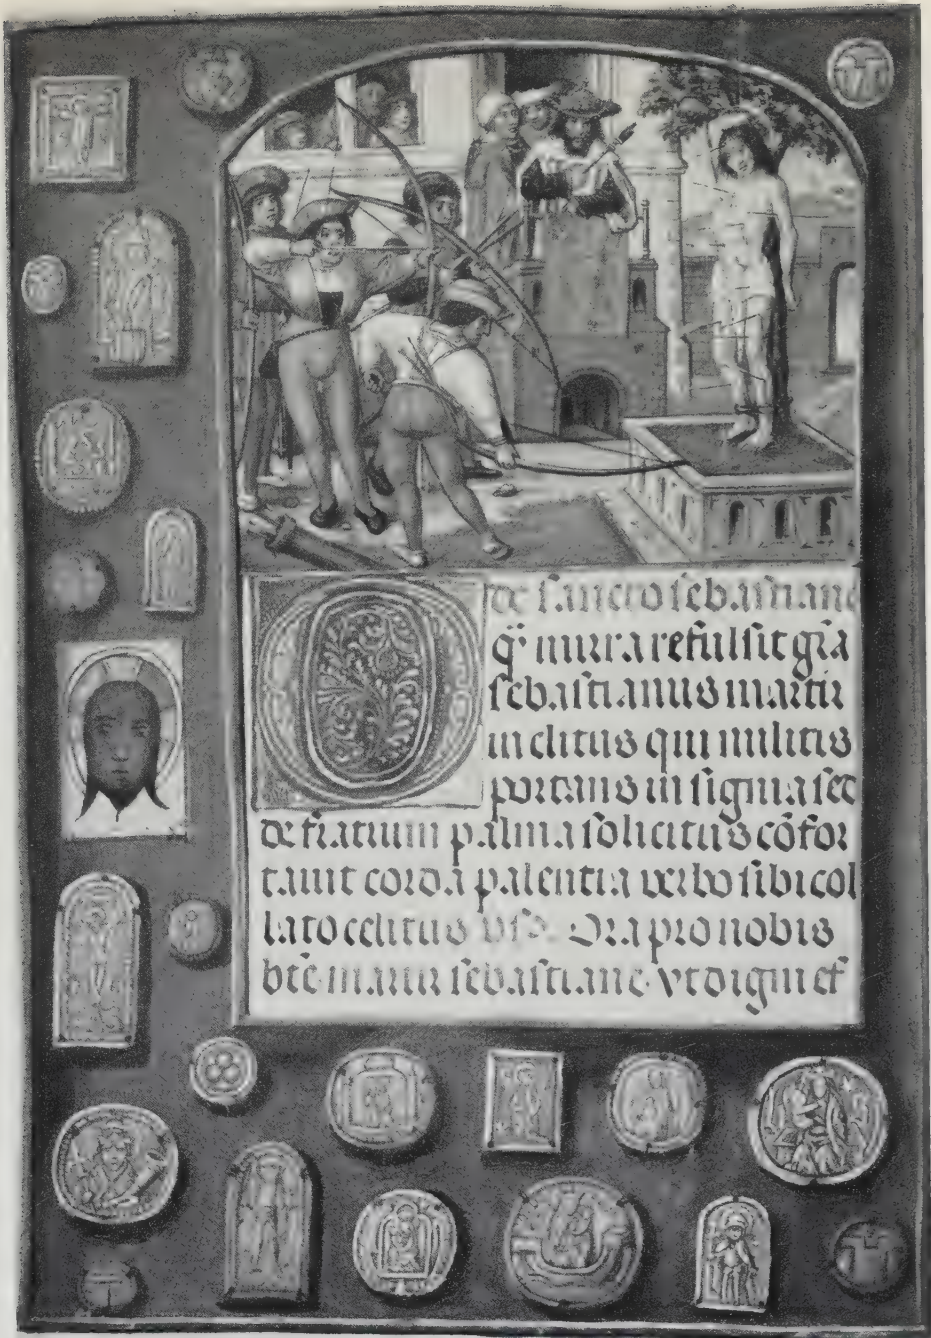 De sancto sebastiano
O q̃ mira refulsit grã
sebastianus martir
inclitus qui militis
portans insignia sed
de fratrum palma solicitus cõfor
tauit corda palentia verbo sibi col
lato celitus vſ̃. Ora pro nobis
btẽ martir sebastiane. vt digni ef